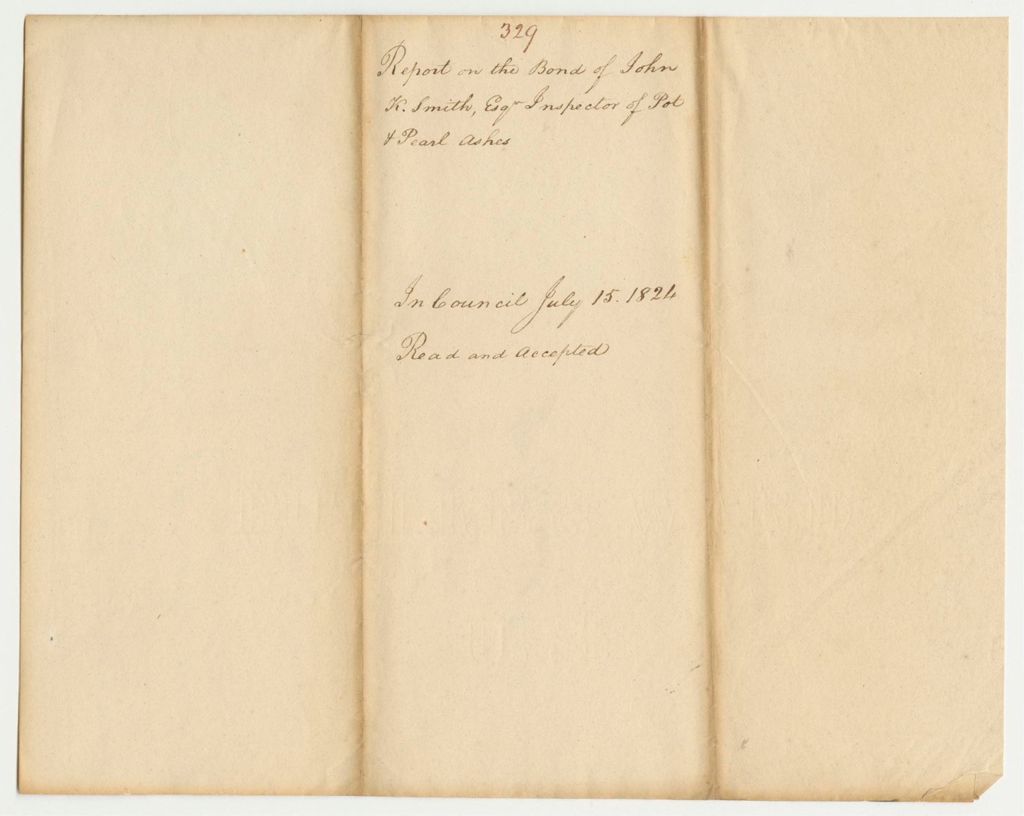 329
Report on the Bond of John
K. Smith, Esqr Inspector of Pot
& Pearl Ashes
In Council July 15. 1824
Read and accepted